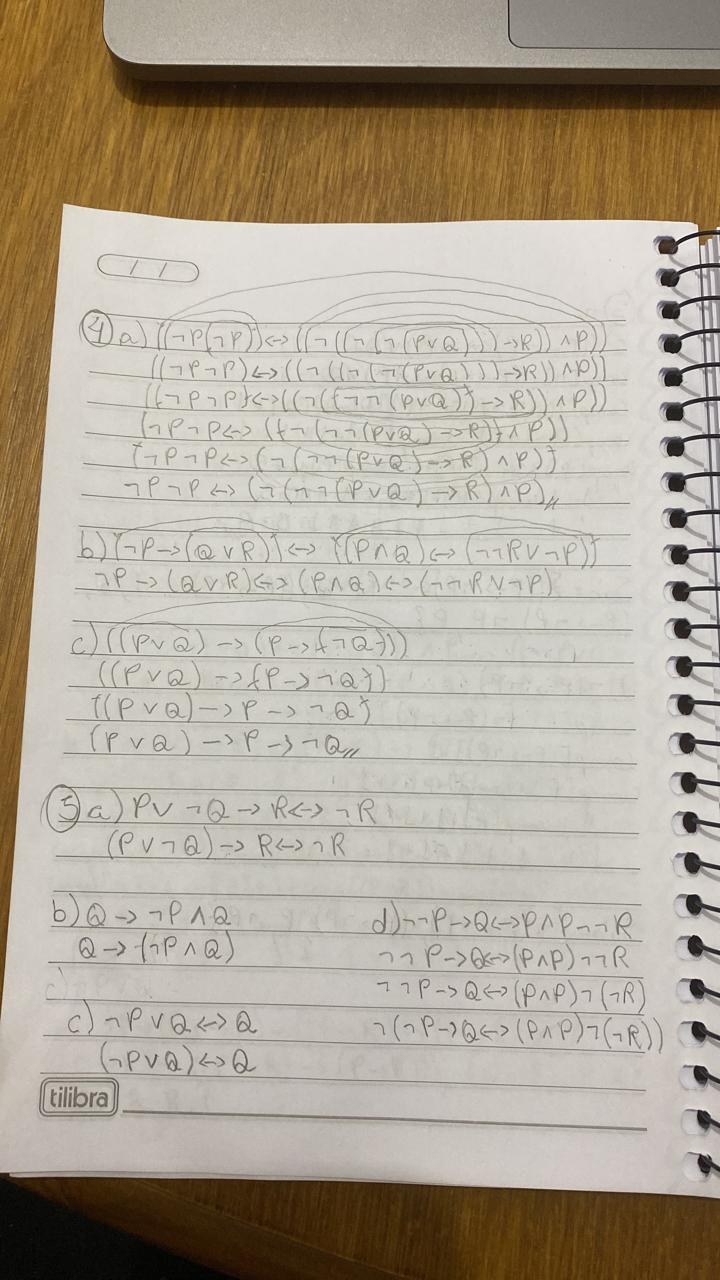 / /
4) a) ((¬P(¬P))<->((¬((¬(¬(P∨Q)))->R))∧P))
((¬P¬P)<->((¬((¬(¬(P∨Q)))->R))∧P))
((¬P¬P)<->((¬((¬¬(P∨Q))->R))∧P))
(¬P¬P<->((¬(¬¬(P∨Q)->R))∧P))
(¬P¬P<->(¬(¬¬(P∨Q)->R)∧P))
¬P¬P<->(¬(¬¬(P∨Q)->R)∧P)//
b) (¬P->(Q∨R))<->((P∧Q)<->(¬¬R∨¬P))
¬P->(Q∨R)<->(P∧Q)<->(¬¬R∨¬P)
c) ((P∨Q)->(P->(¬Q)))
((P∨Q)->(P->¬Q))
((P∨Q)->P->¬Q)
(P∨Q)->P->¬Q//
5) a) P∨¬Q->R<->¬R
(P∨¬Q)->R<->¬R
b) Q->¬P∧Q
Q->(¬P∧Q)
c) ¬P∨Q<->Q
(¬P∨Q)<->Q
d) ¬¬P->Q<->P∧P¬¬R
¬¬P->Q<->(P∧P)¬¬R
¬¬P->Q<->(P∧P)¬(¬R)
¬(¬P->Q<->(P∧P)¬(¬R))
tilibra